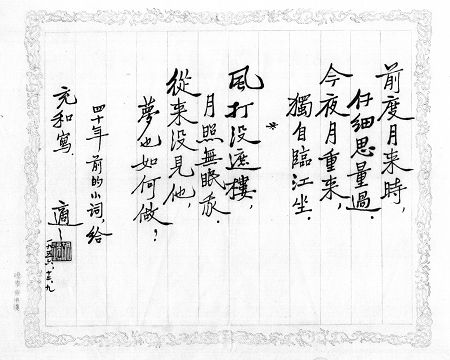 前度月来時，
仔細思量過．
今夜月重来，
獨自臨江坐．
＊
風打没遮樓，
月照無眠我．
從来没見他，
夢也如何做？
四十年前的小詞，給
充和寫．
適之
一九五六，十二，九